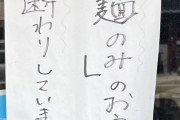 麺のみのお
し
断わりしていま